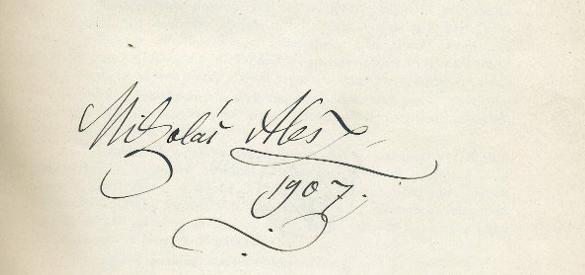 Mikoláš Aleš
1907.